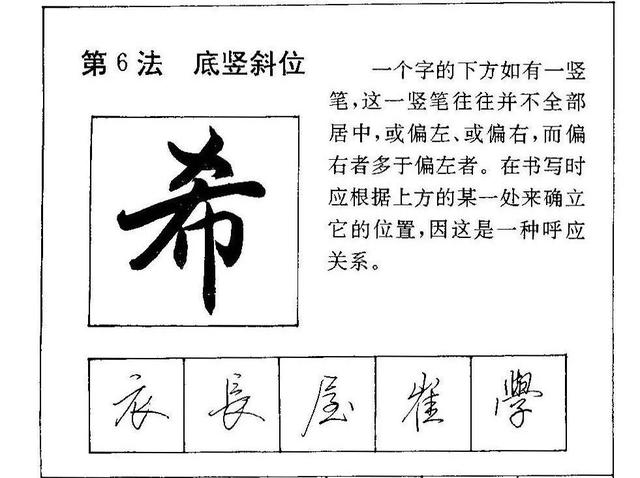 第6法 底竖斜位
一个字的下方如有一竖
笔，这一竖笔往往并不全部
居中，或偏左、或偏右，而偏
右者多于偏左者。在书写时
应根据上方的某一处来确立
它的位置，因这是一种呼应
关系。
希
衣 長 屋 崔 學